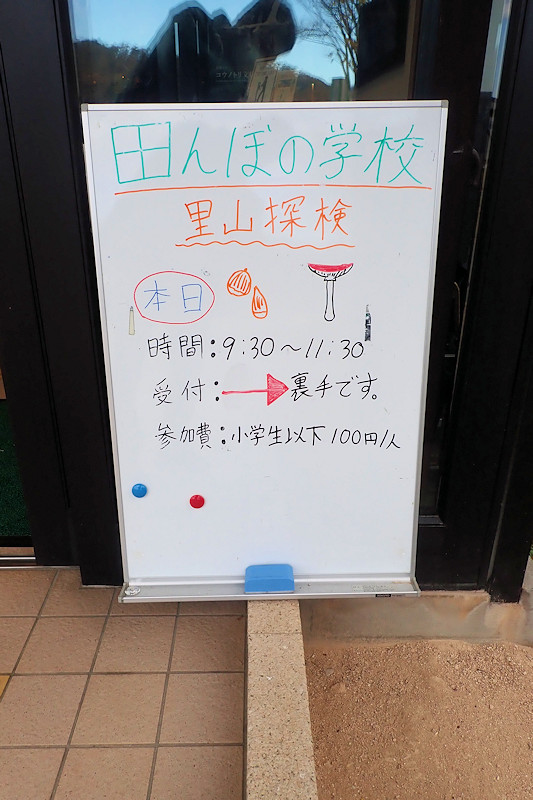 田んぼの学校
里山探検
本日
時間:9:30～11:30
受付:→裏手です。
参加費:小学生以下100円/人